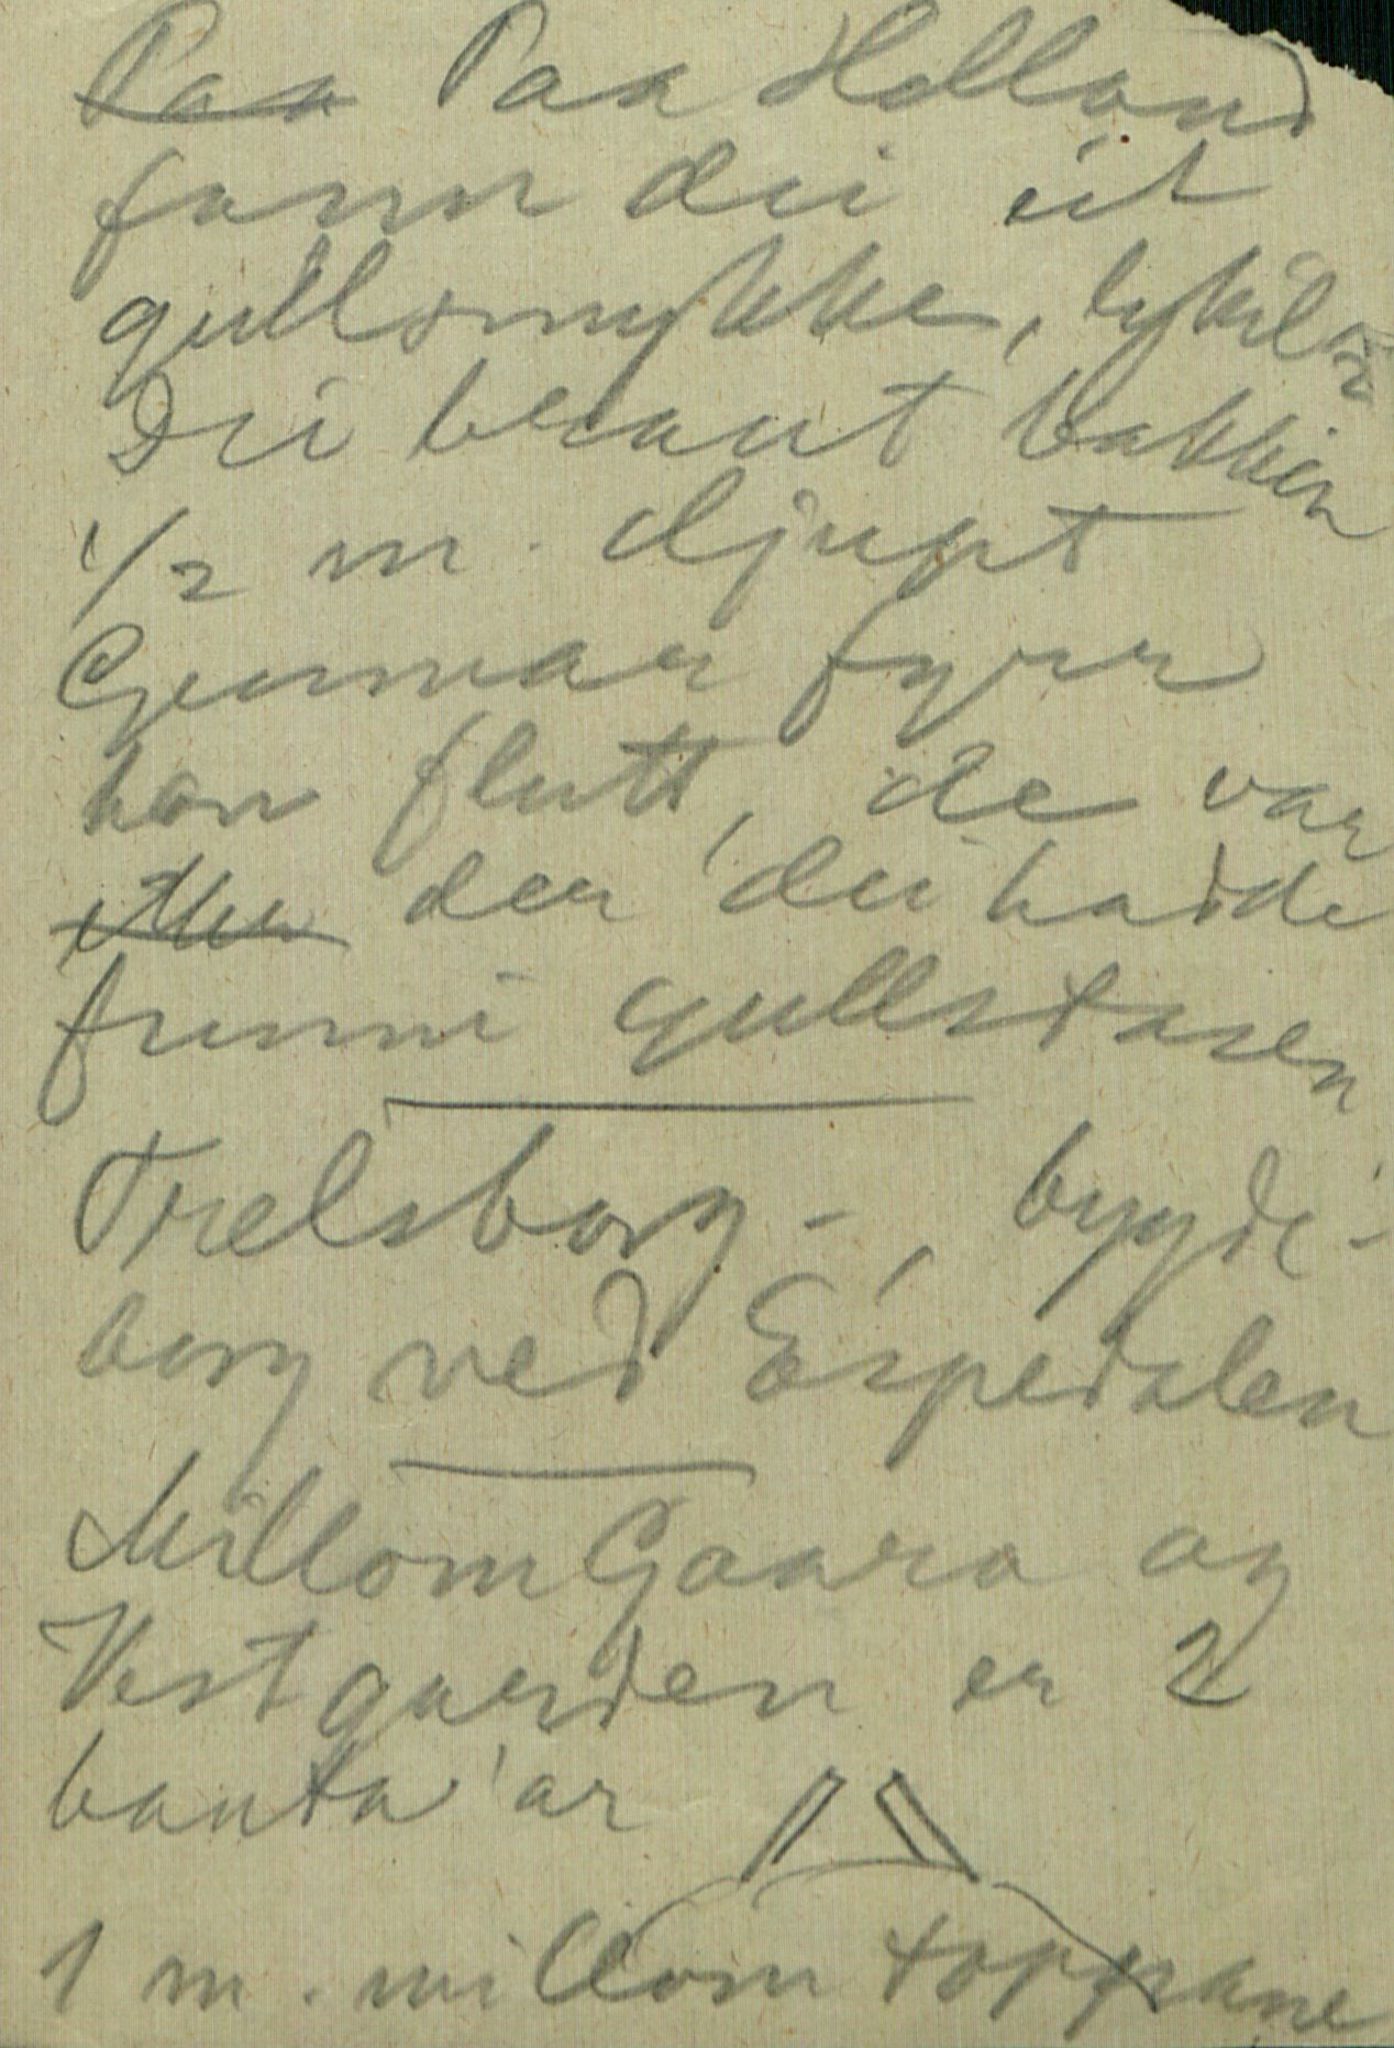 Paa Paa Helland
fann dei eit
gullsmykke, lykil
Dei beraut bakken
1/2 m. djupt
Gunnar fyrr
han flutt, de var
der dei hadde
funni gullstasen
Trelsborg -, bygde-
borg ved Espedalen
Millom Gaara og
Vestgarden er 2
bauta'ar
1 m. millom toppane